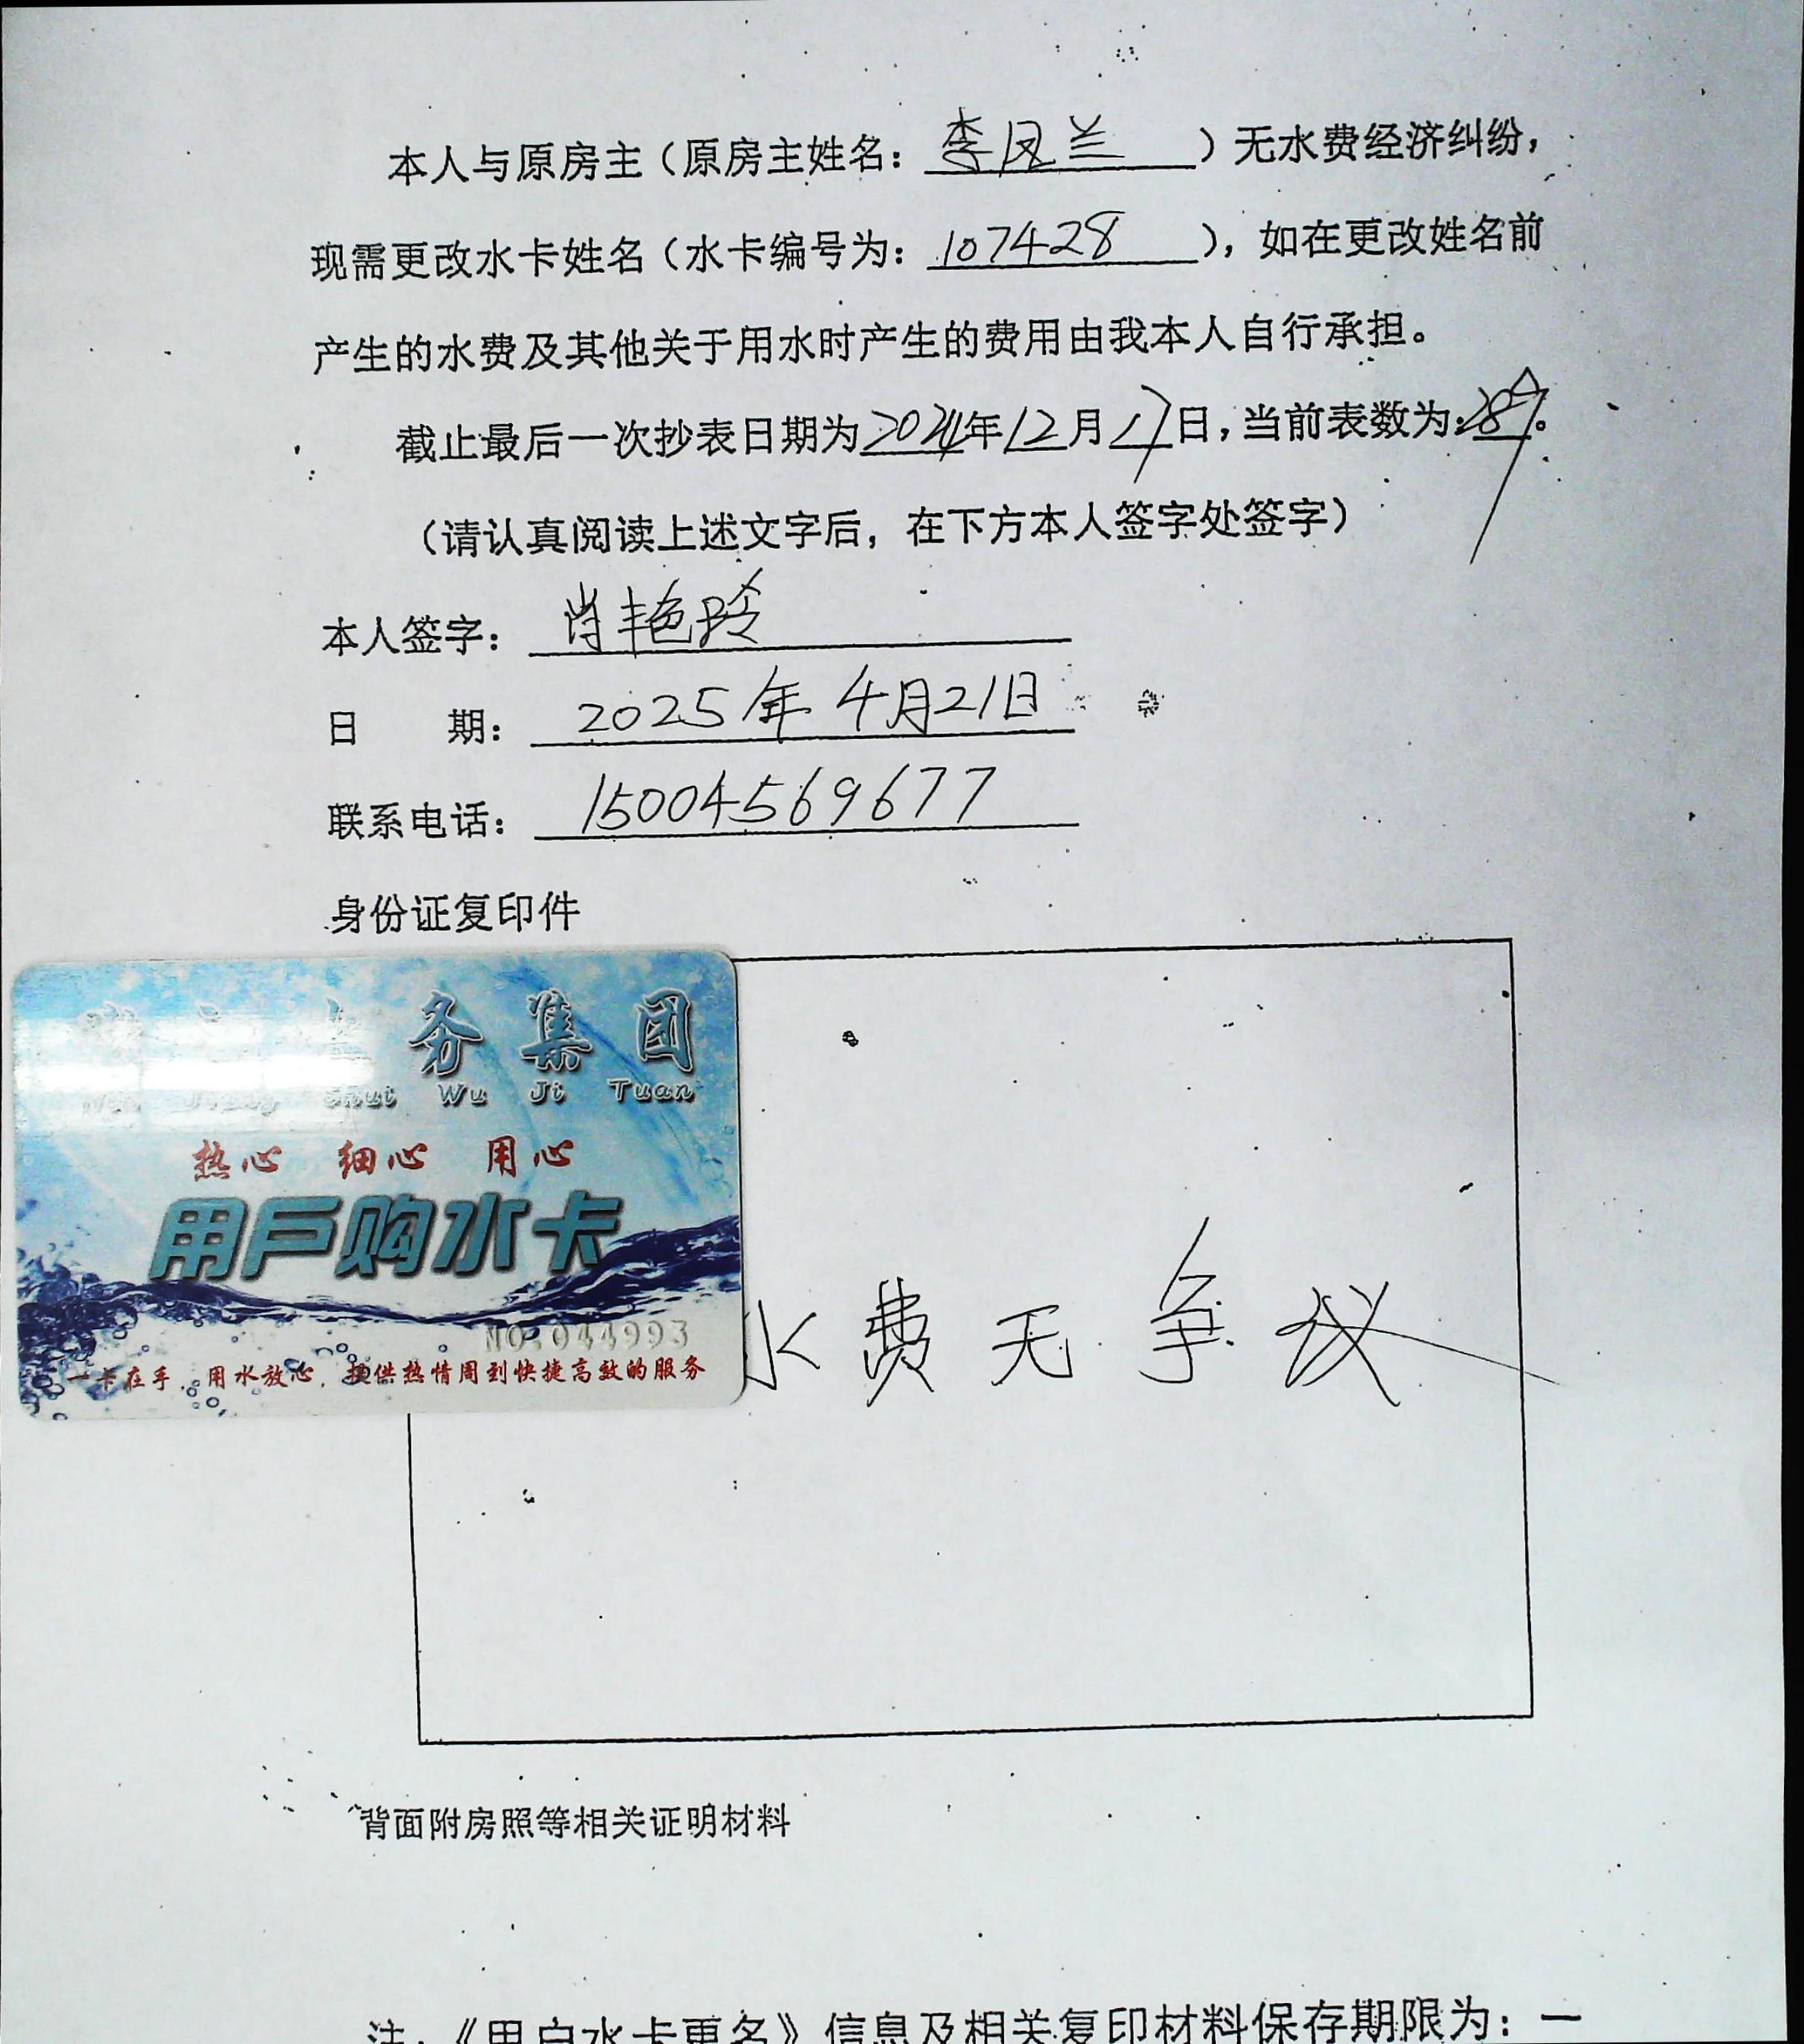 本人与原房主（原房主姓名：李凤兰）无水费经济纠纷，
现需更改水卡姓名（水卡编号为：107428），如在更改姓名前
产生的水费及其他关于用水时产生的费用由我本人自行承担。
截止最后一次抄表日期为2024年12月17日，当前表数为：287。
（请认真阅读上述文字后，在下方本人签字处签字）
本人签字：肖艳玲
日 期：2025年4月21日
联系电话：15004569677
身份证复印件
务集团
Shui Wu Ji Tuan
热心 细心 用心
用户购水卡
NO.044993
一卡在手，用水放心，提供热情周到快捷高效的服务
水费无争议
背面附房照等相关证明材料
注：《用户水卡更名》信息及相关复印材料保存期限为：一